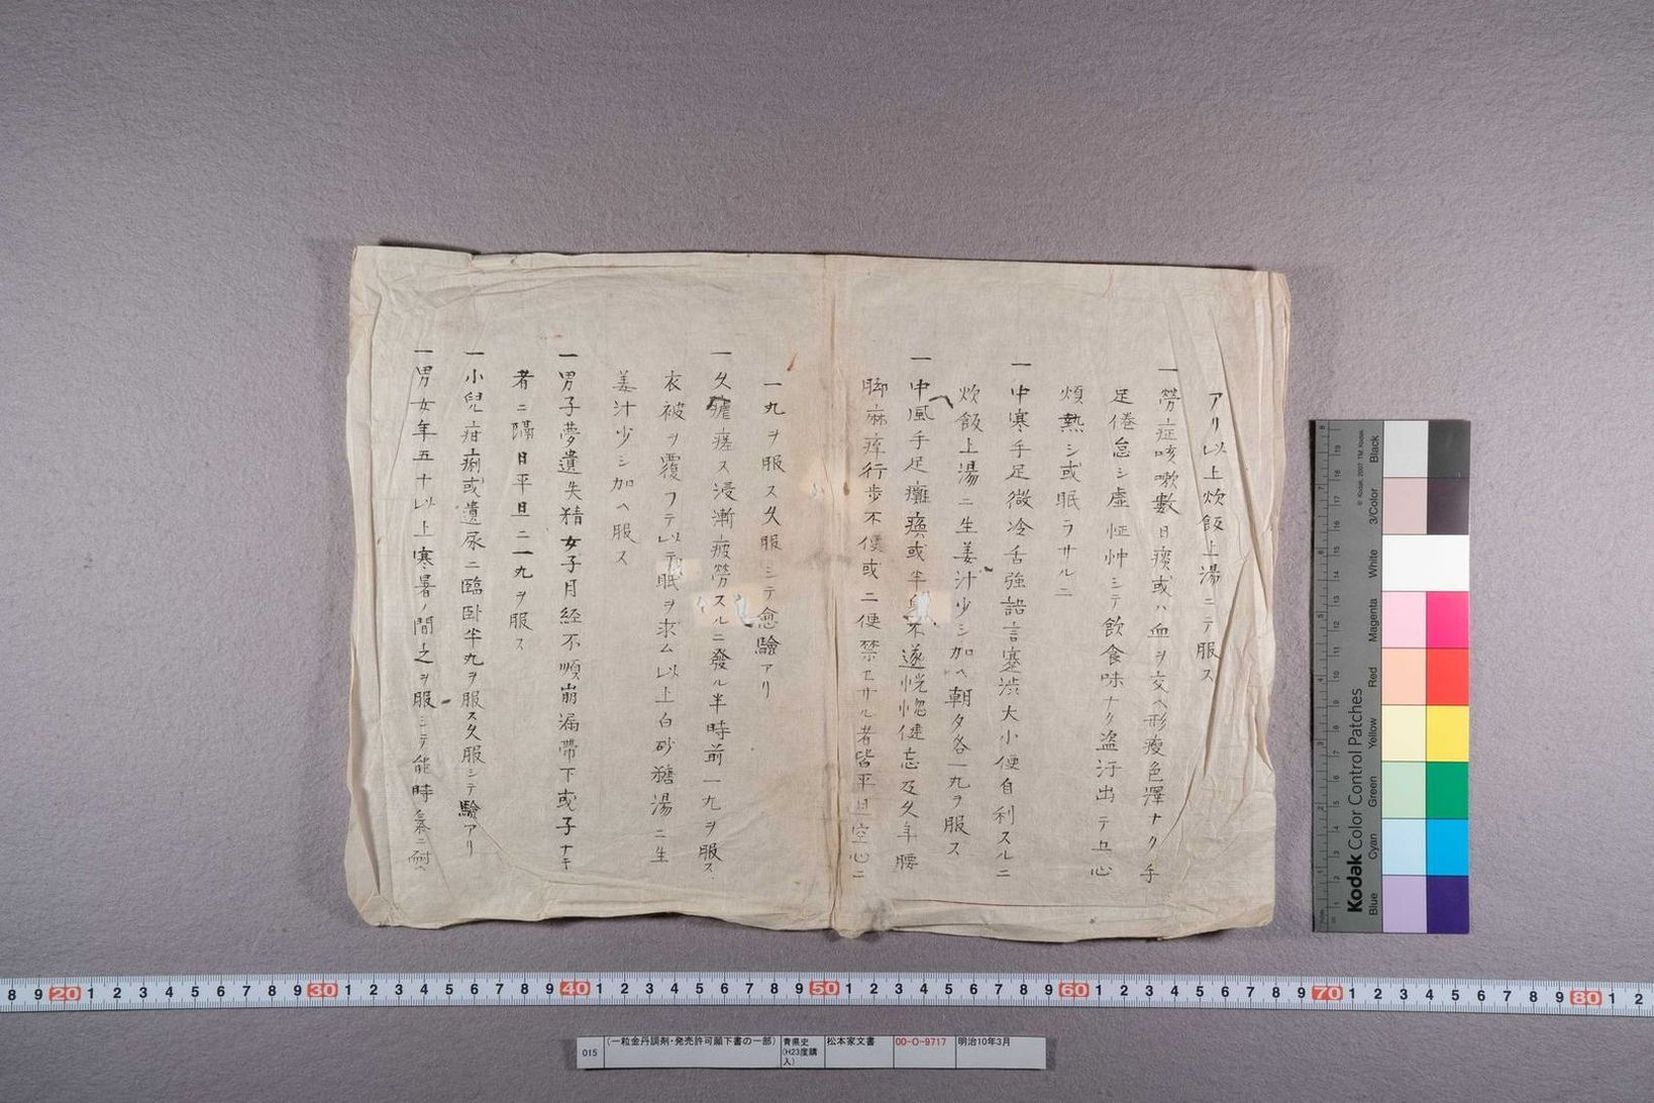 アリ以上炊飯上湯ニテ服ス
一勞症咳嗽數日痰或ハ血ヲ交ヘ形瘦色澤ナク手
足倦怠シ虚怔忡シテ飲食味ナク盗汗出テ五心
煩熱シ或眠ラサルニ
一中寒手足微冷舌強語言蹇渋大小便自利スルニ
炊飯上湯ニ生姜汁少シ加ヘ朝夕各一丸ヲ服ス
一中風手足癱瘓或半身不遂恍惚健忘及久年腰
脚麻痺行歩不便或二便禁セサル者皆平旦空心ニ
一丸ヲ服ス久服シテ愈驗アリ
一久瘧瘥ス浸漸疲勞スルニ發ル半時前一丸ヲ服ス
衣被ヲ覆フテ以テ眠ヲ求ム以上白砂糖湯ニ生
姜汁少シ加ヘ服ス
一男子夢遺失精女子月経不順崩漏帶下或子ナキ
者ニ隔日平旦ニ一丸ヲ服ス
一小兒疳痢或遺尿ニ臨卧半丸ヲ服ス久服シテ驗アリ
一男女年五十以上寒暑ノ間之ヲ服シテ能時氣ニ耐ヘ
Kodak Color Control Patches
© Kodak, 2007 TM: Kodak
Blue Cyan Green Yellow Red Magenta White 3/Color Black
8 9 20 1 2 3 4 5 6 7 8 9 30 1 2 3 4 5 6 7 8 9 40 1 2 3 4 5 6 7 8 9 50 1 2 3 4 5 6 7 8 9 60 1 2 3 4 5 6 7 8 9 70 1 2 3 4 5 6 7 8 9 80 1 2
015 (一粒金丹調剤・発売許可願下書の一部) 青県史(H23度購入) 松本家文書 00-O-9717 明治10年3月